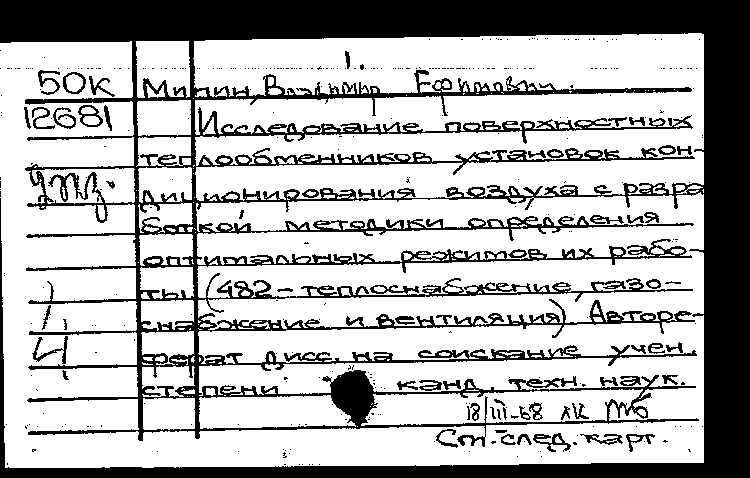 1.
50К Минин, Владимир Ефимович.
12681 Исследование поверхностных
теплообменников установок кон-
2пз. диционирования воздуха с разра
боткой методики определения
оптимальных режимов их рабо-
ты (482-теплоснабжение, газо-
снабжение и вентиляция). Авторе-
ферат дисс. на соискание учен.
степени канд. техн. наук.
18/III-68
См. след. карт.